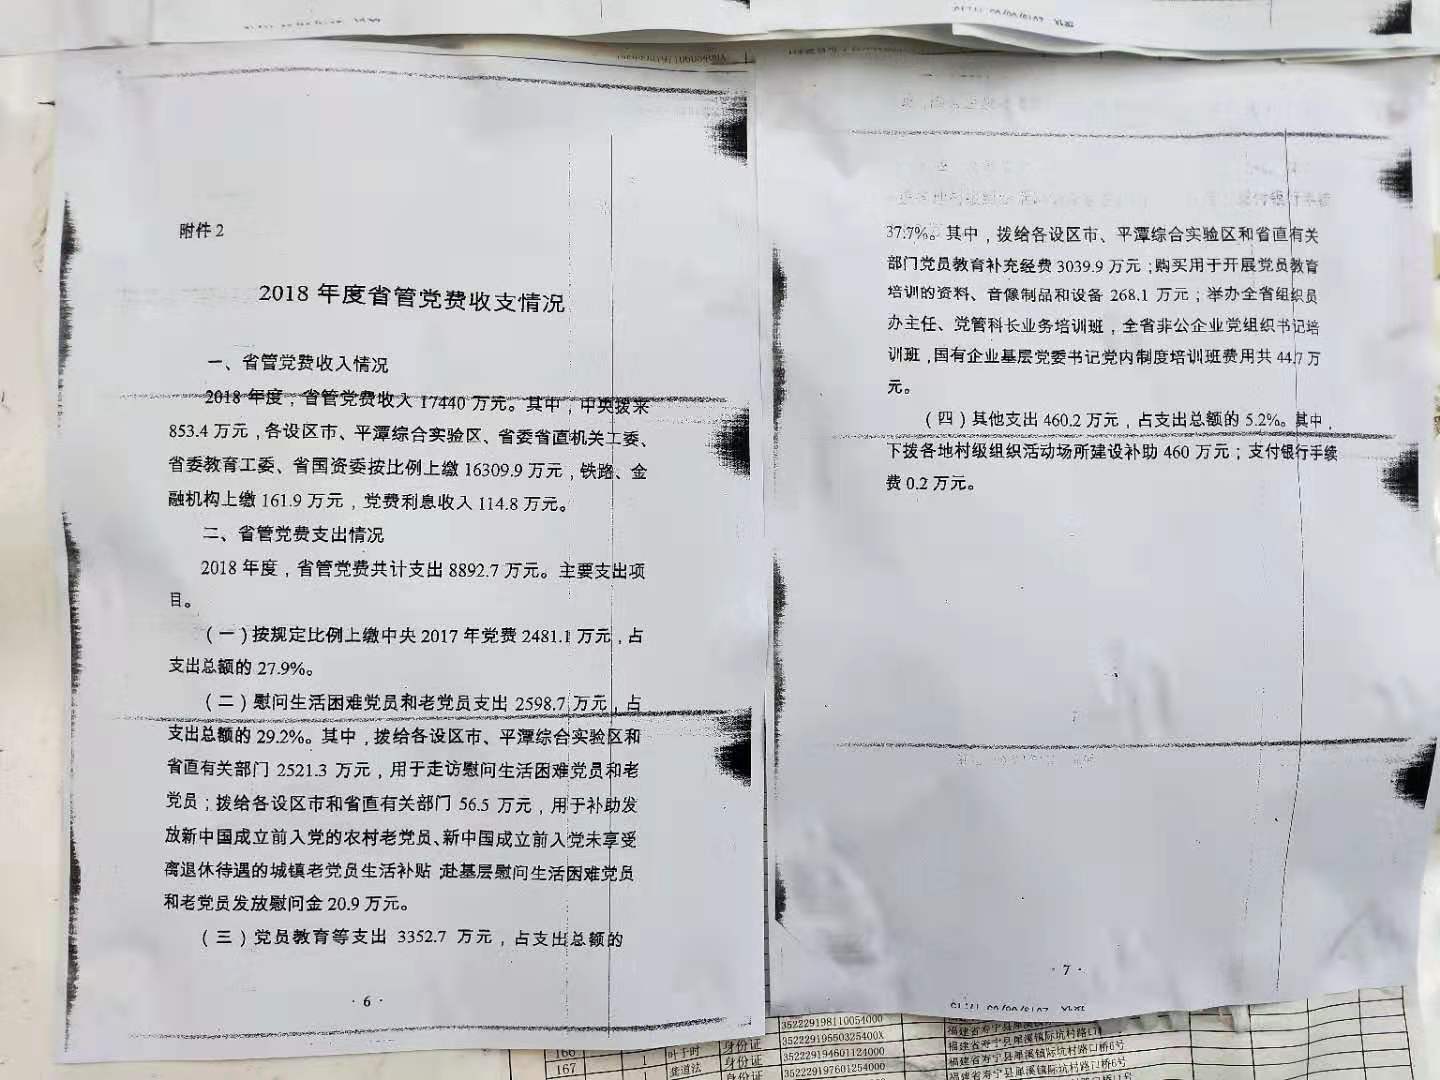 附件2
2018 年度省管党费收支情况
一、省管党费收入情况
2018 年度，省管党费收入 17440 万元。其中，中央拨来
853.4 万元，各设区市、平潭综合实验区、省委省直机关工委、
省委教育工委、省国资委按比例上缴 16309.9 万元，铁路、金
融机构上缴 161.9 万元，党费利息收入 114.8 万元。
二、省管党费支出情况
2018 年度，省管党费共计支出 8892.7 万元。主要支出项
目。
（一）按规定比例上缴中央 2017 年党费 2481.1 万元，占
支出总额的 27.9%。
（二）慰问生活困难党员和老党员支出 2598.7 万元，占
支出总额的 29.2%。其中，拨给各设区市、平潭综合实验区和
省直有关部门 2521.3 万元，用于走访慰问生活困难党员和老
党员；拨给各设区市和省直有关部门 56.5 万元，用于补助发
放新中国成立前入党的农村老党员、新中国成立前入党未享受
离退休待遇的城镇老党员生活补贴,赴基层慰问生活困难党员
和老党员发放慰问金 20.9 万元。
（三）党员教育等支出 3352.7 万元，占支出总额的
· 6 ·
37.7%。其中，拨给各设区市、平潭综合实验区和省直有关
部门党员教育补充经费 3039.9 万元；购买用于开展党员教育
培训的资料、音像制品和设备 268.1 万元；举办全省组织员
办主任、党管科长业务培训班，全省非公企业党组织书记培
训班，国有企业基层党委书记党内制度培训班费用共 44.7 万
元。
（四）其他支出 460.2 万元，占支出总额的 5.2%。其中，
下拨各地村级组织活动场所建设补助 460 万元；支付银行手续
费 0.2 万元。
· 7 ·
352229198110054000
166 1 叶于时 身份证 35222919550325400X 福建省寿宁县犀溪镇际坑村路口
167 1 龚道法 身份证 352229194601124000 福建省寿宁县犀溪镇际坑村路口桥6号
身份证 352229197601254000 福建省寿宁县犀溪镇际坑村路口桥6号